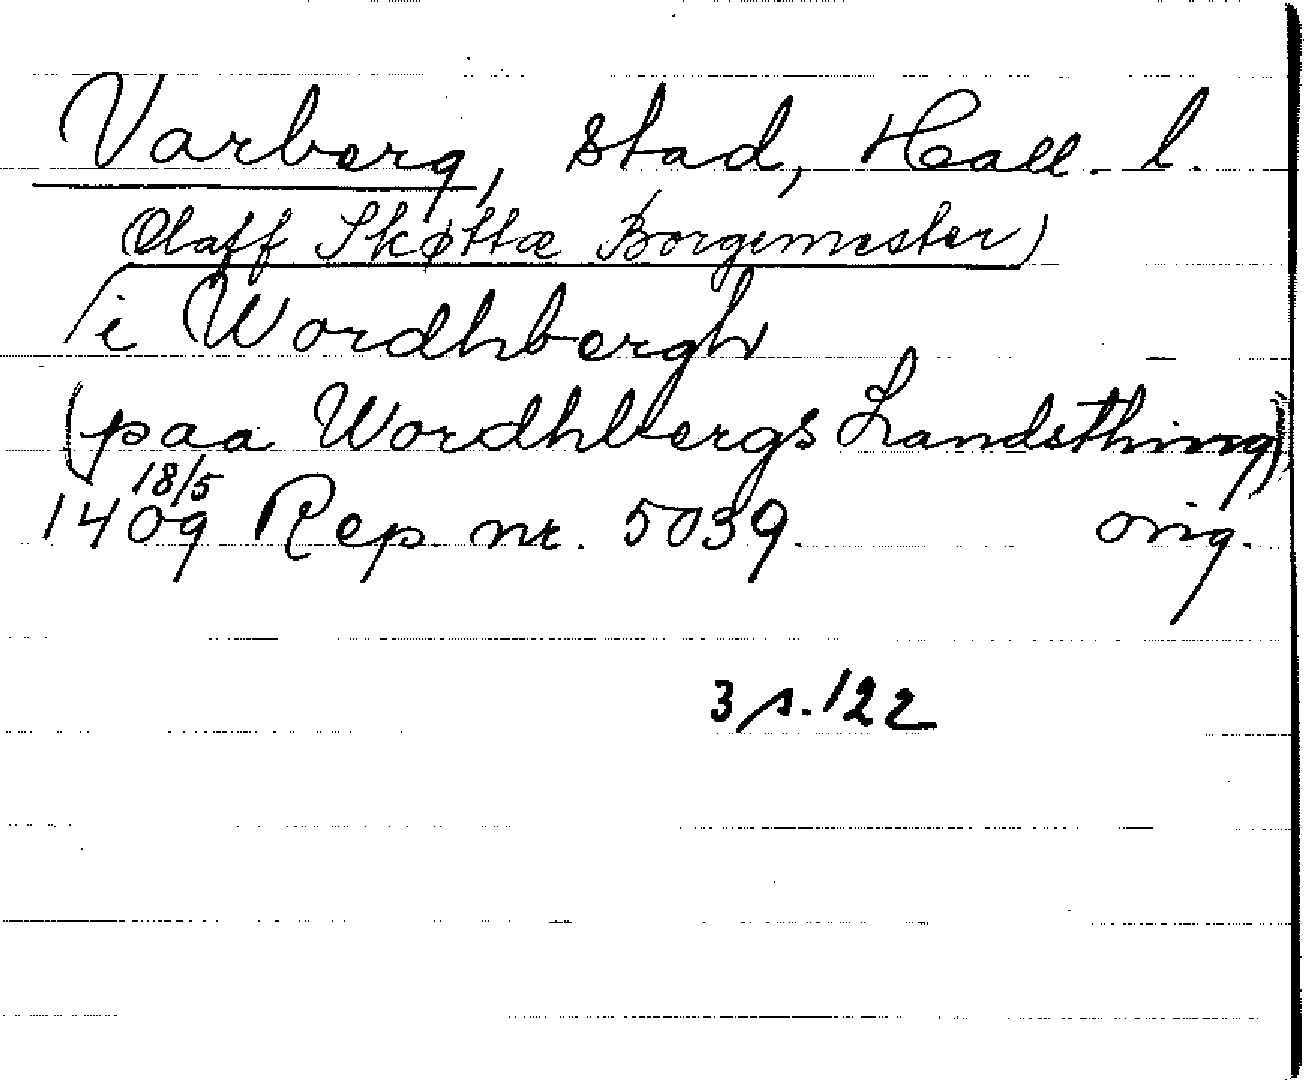 Varberg, stad, Hall. l.
(Olaff Skøttæ Borgemester)
i Wordhbergh
(paa Wordhbergs Landsthing)
18/5
1409 Rep. nr. 5039. orig.
3 s. 122